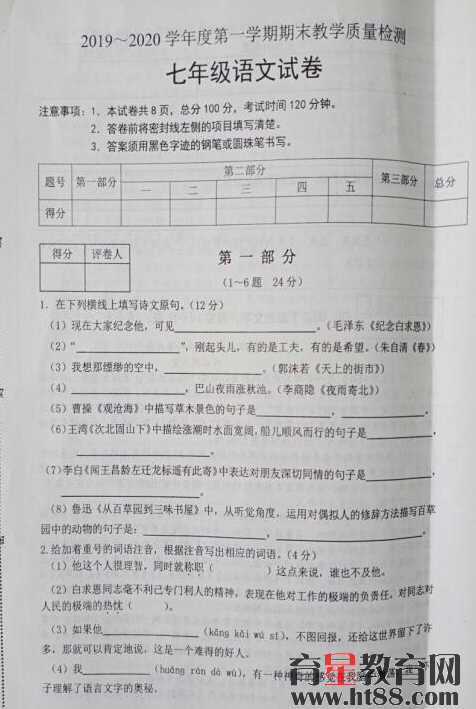 2019～2020学年度第一学期期末教学质量检测
七年级语文试卷
注意事项：1．本试卷共8页，总分100分，考试时间120分钟。
2．答卷前将密封线左侧的项目填写清楚。
3．答案须用黑色字迹的钢笔或圆珠笔书写。
题号 第一部分 第二部分 第三部分 总分
一 二 三 四 五
得分
得分 评卷人
第一部分
（1～6题 24分）
1. 在下列横线上填写诗文原句。（12分）
（1）现在大家纪念他，可见______。（毛泽东《纪念白求恩》）
（2）“______”，刚起头儿，有的是工夫，有的是希望。（朱自清《春》）
（3）我想那缥缈的空中，______。（郭沫若《天上的街市》）
（4）______，巴山夜雨涨秋池。（李商隐《夜雨寄北》）
（5）曹操《观沧海》中描写草木景色的句子是______，______。
（6）王湾《次北固山下》中描绘涨潮时水面宽阔，船儿顺风而行的句子是______，
______。
（7）李白《闻王昌龄左迁龙标遥有此寄》中表达对朋友深切同情的句子是______，
______。
（8）鲁迅《从百草园到三味书屋》中，从听觉角度，运用对偶拟人的修辞方法描写百草
园中的动物的句子是：______，______。
2. 给加着重号的词语注音，根据注音写出相应的词语。（4分）
（1）他这个人很理智，同时就称职（ ）这点来说，谁也不及他。
（2）白求恩同志毫不利己专门利人的精神，表现在他对工作的极端的负责任，对同志对
人民的极端的热忱（ ）。
（3）如果他______（kāng kǎi wú sī），不图回报，还给这世界留下了许
多，那就可以肯定地说，这是一个难得的好人。
（4）我______（huǎng rán dà wù），有一种神
子理解了语言文字的奥秘。
育星教育网
www.ht88.com